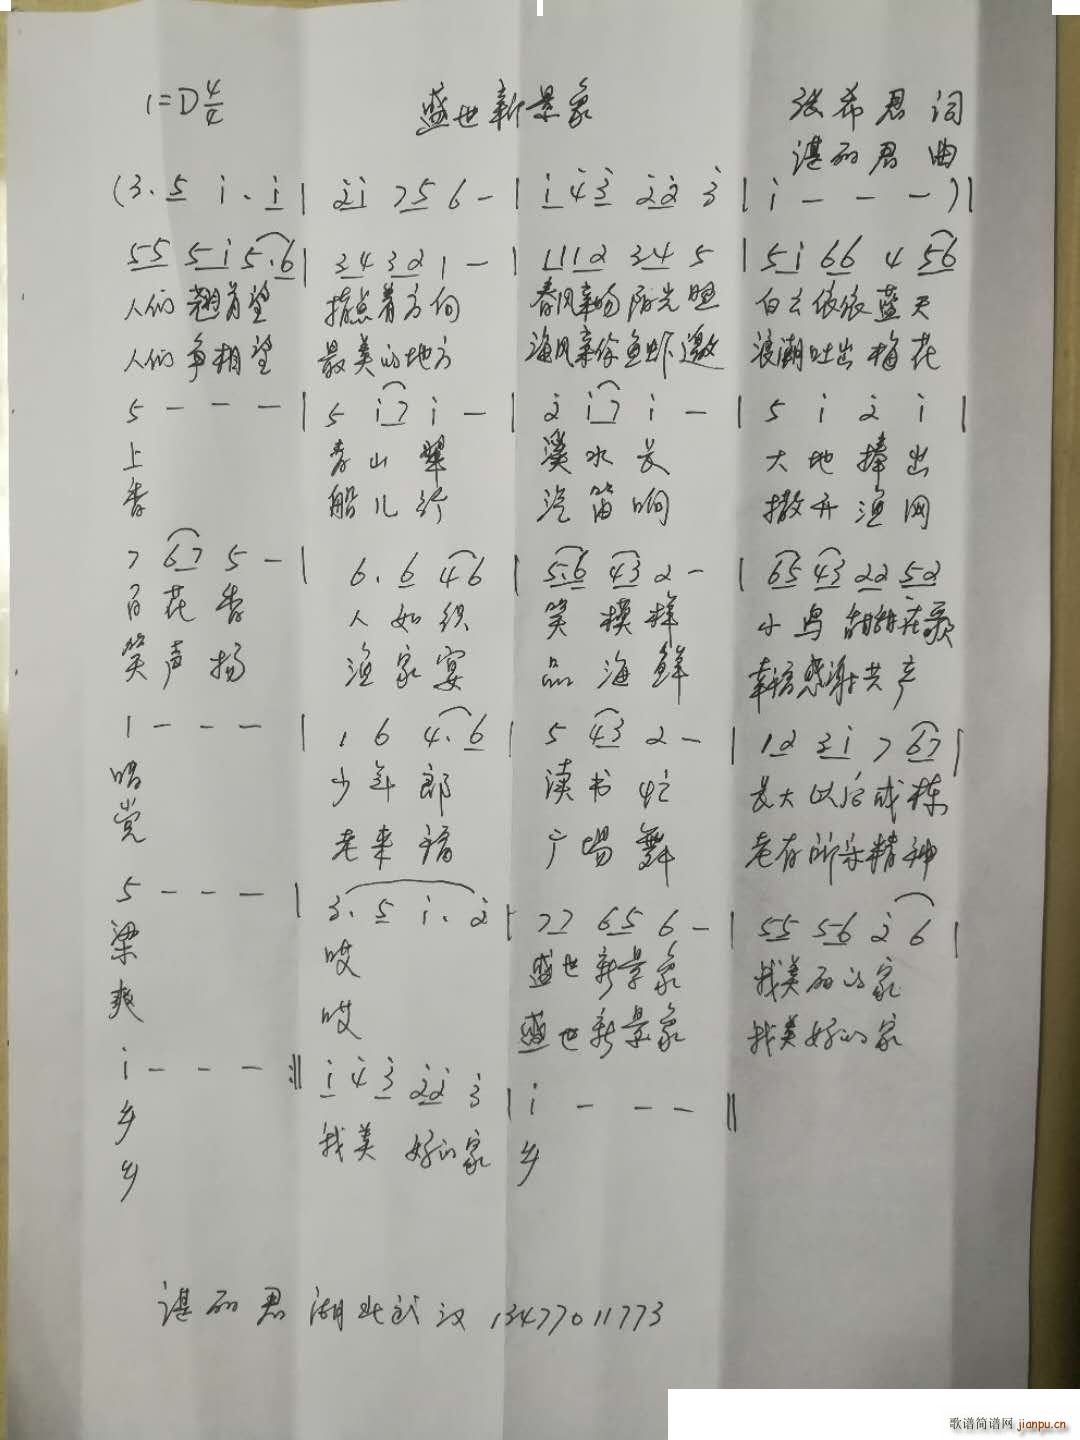 1=D 4/4 盛世新景象 张希君 词
谌丽君 曲
(3. 5 i. i | 2i 75 6 - | i 4 3 22 3 | i - - - ) |
55 5i 5.6 | 34 32 1 - | 1112 34 5 | 5i 66 4 56
人们翘首望 指点着方向 春风和畅阳光照 白云依依蓝天
人们争相望 最美的地方 海风亲你鱼虾邀 浪潮吐出梅花
5 - - - | 5 i7 i - | 2 i7 i - | 5 i 2 i |
上 青山翠 溪水长 大地捧出
香 船儿行 汽笛响 撒开渔网
7 67 5 - | 6. 6 46 | 5.6 43 2 - | 65 43 22 52
百花香 人如织 笑模样 小鸟甜甜在歌
笑声扬 渔家宴 品海鲜 幸福感谢共产
1 - - - | 1 6 4.6 | 5 43 2 - | 12 3i 7 67 |
唱 少年郎 读书忙 长大以后成栋
党 老来福 广场舞 老有所乐精神
5 - - - | 3. 5 i. 2 | 77 65 6 - | 55 56 2 6 |
梁 哎 盛世新景象 我美丽的家
爽 哎 盛世新景象 我美好的家
i - - - :‖ i 4 3 22 3 | i - - - ‖
乡 我美好的家 乡
乡
谌丽君 湖北武汉 13477011773
歌谱简谱网 jianpu.cn